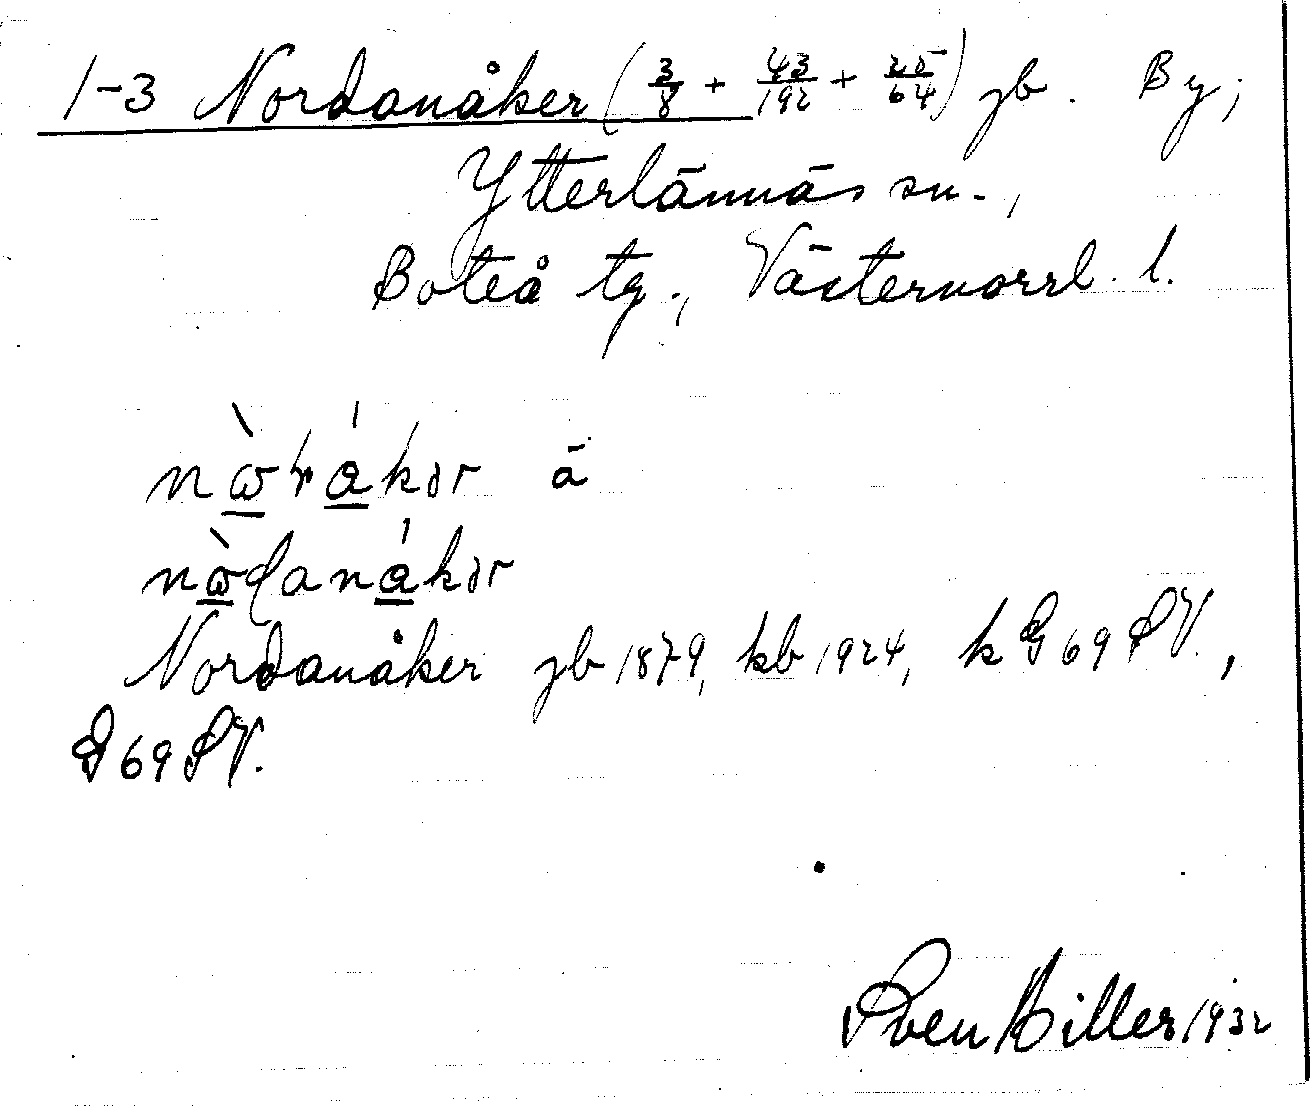 1-3 Nordanåker (3/8 + 43/192 + 25/64) jb. By;
Ytterlännäs sn.,
Boteå tg., Västernorrl. l.
nɷ̀rákər ä
nɷ̀danákər
Nordanåker jb 1879, kb 1924, k G 69 SV.,
G 69 SV.
Sven Hiller 1932